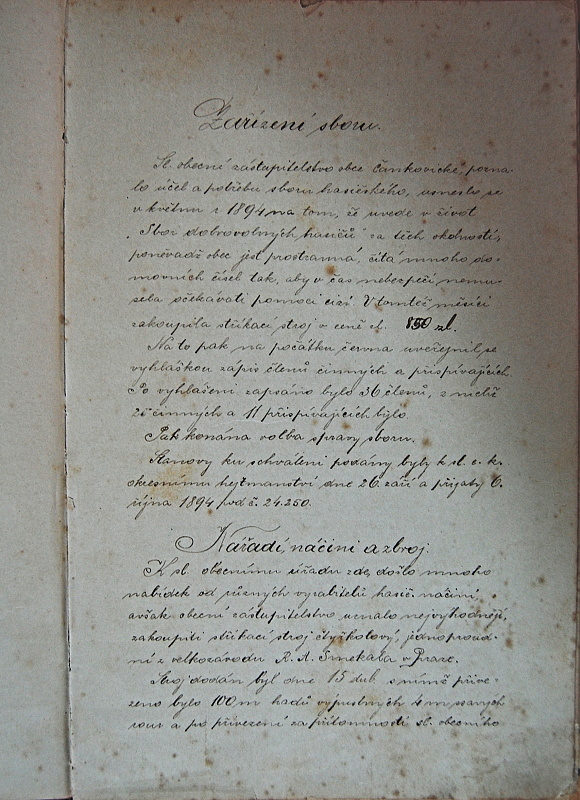 Zařízení sboru.
Sl. obecní zastupitelstvo obce Čankovické, pozna-
lo účel a potřebu sboru hasičského, usneslo se
v květnu r 1894 na tom, že uvede v život
Sbor dobrovolných hasičů za těch okolností,
poněvadž obec jest prostranná, čítá mnoho do-
movních čísel tak, aby v čas nebezpečí nemu-
sela očekávati pomoci cizí. V tomtéž měsíci
zakoupila stříkací stroj v ceně zl. 850 zl.
Na to pak na počátku června uveřejnil se
vyhláškou zápis členů činných a přispívajících.
Po vyhlášení zapsáno bylo 36 členů, z nichž
25 činných a 11 přispívajících bylo.
Pak konána volba správy sboru.
Stanovy ku schválení podány byly k sl. c. k.
okresnímu hejtmanství dne 26. září a přijaty 6.
října 1894 pod č. 24.250.
Nářadí, náčiní a zbroj.
K sl. obecnímu úřadu zde, došlo mnoho
nabídek od různých vyrabitelů hasič. náčiní,
avšak obecní zastupitelstvo uznalo nejvýhodněji,
zakoupiti stříkací stroj čtyřkolový, jednoproud-
ní z velkozávodu R. A. Smekala v Praze.
Stroj dodán byl dne 15 dub. s nímž přive-
zeno bylo 100 m hadů výpustných 4 m ssavých
rour a po přivezení za přítomnosti sl. obecního